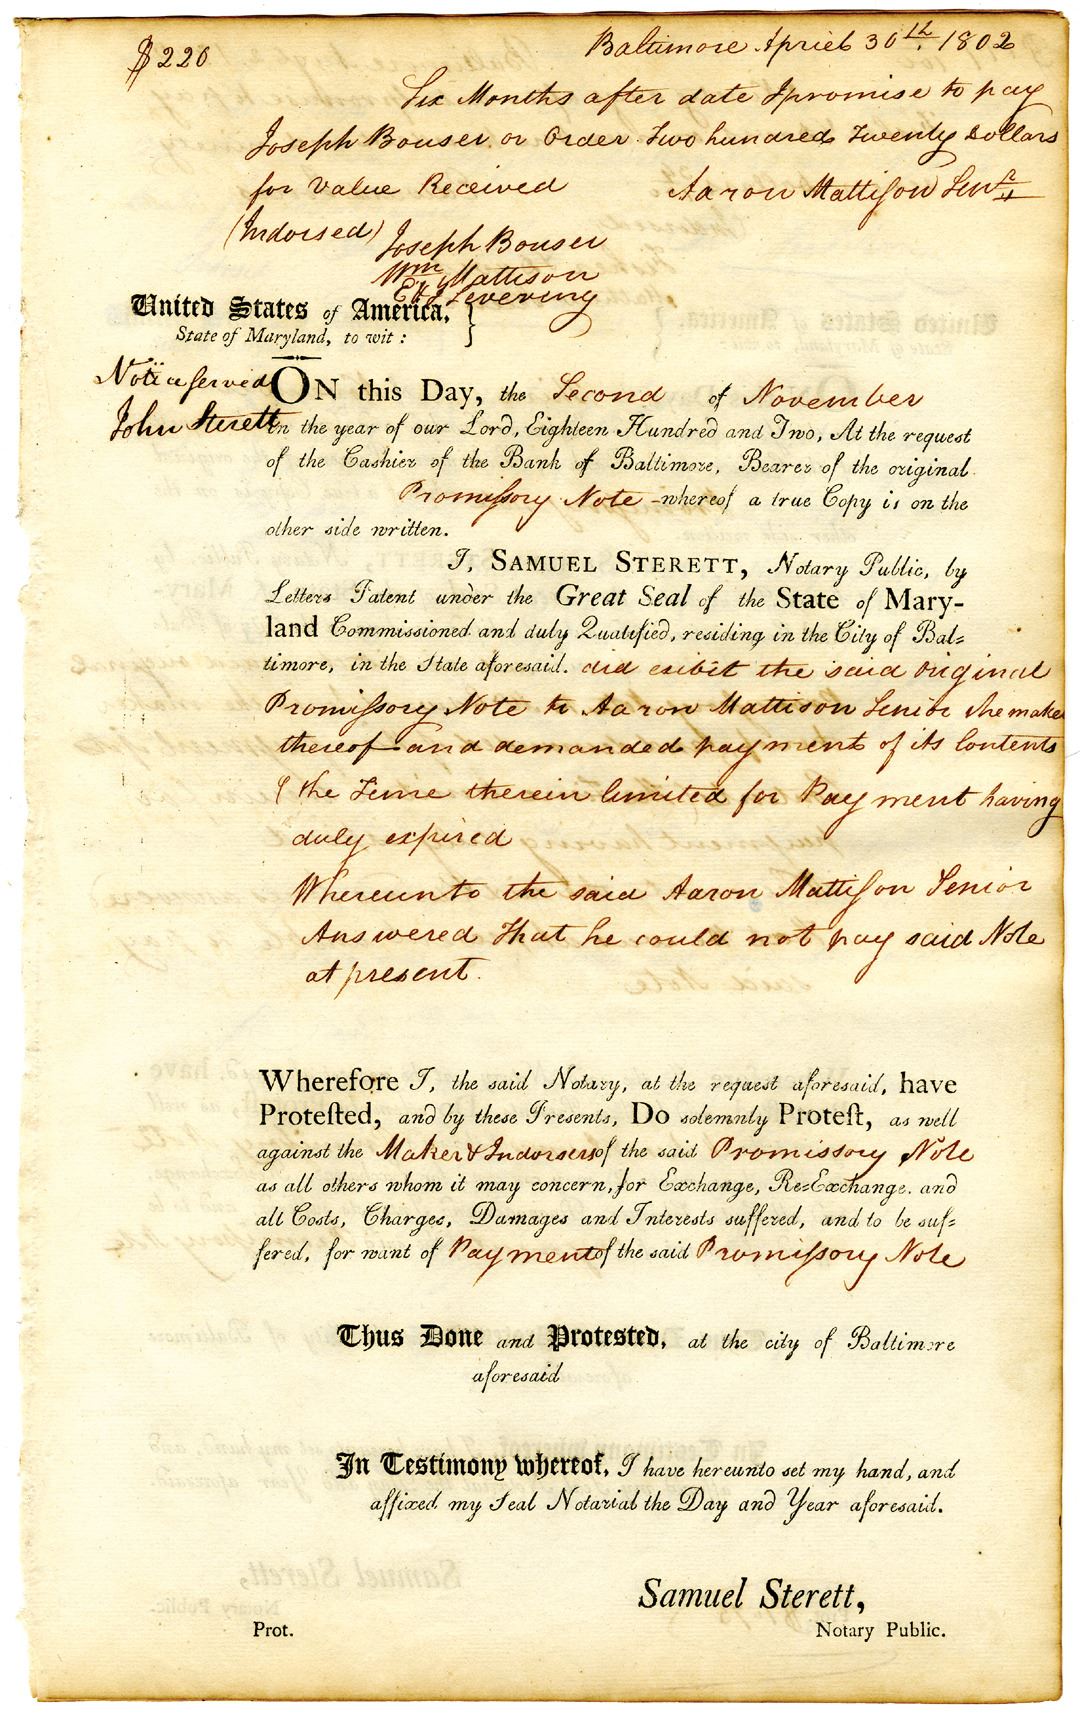 $220
Baltimore April 30th. 1802
Six Months after date I promise to pay
Joseph Bouser or Order Two hundred Twenty Dollars
for Value Received Aaron Mattison Senr
(Indorsed) Joseph Bouser
Wm Mattison
Levering
United States of America, }
State of Maryland, to wit :
Notice served
John Sterett
ON this Day, the Second of November
in the year of our Lord, Eighteen Hundred and Two, At the request
of the Cashier of the Bank of Baltimore, Bearer of the original
Promissory Note -whereof a true Copy is on the
other side written.
I, SAMUEL STERETT, Notary Public, by
Letters Patent under the Great Seal of the State of Mary-
land Commissioned and duly Qualified, residing in the City of Bal=
timore, in the State aforesaid. did exibit the said Original
Promissory Note to Aaron Mattison Senior the maker
thereof and demanded payment of its Contents
the Time therein limited for Payment having
duly expired
Whereunto the said Aaron Mattison Senior
Answered That he could not pay said Note
at present.
Wherefore I, the said Notary, at the request aforesaid, have
Protested, and by these Presents, Do solemnly Protest, as well
against the Maker & Indorsers of the said Promissory Note
as all others whom it may concern, for Exchange, Re=Exchange. and
all Costs, Charges, Damages and Interests suffered, and to be suf=
fered, for want of Payment of the said Promissory Note
Thus Done and Protested, at the city of Baltimore
aforesaid
In Testimony whereof, I have hereunto set my hand, and
affixed my Seal Notarial the Day and Year aforesaid.
Samuel Sterett,
Prot. Notary Public.